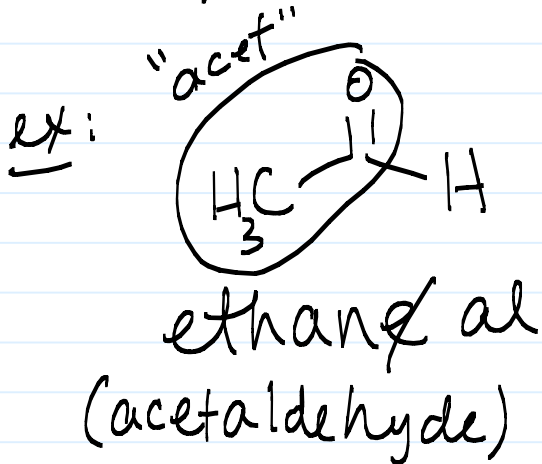 "acet"
ex:
O
H3C
H
ethane al
(acetaldehyde)